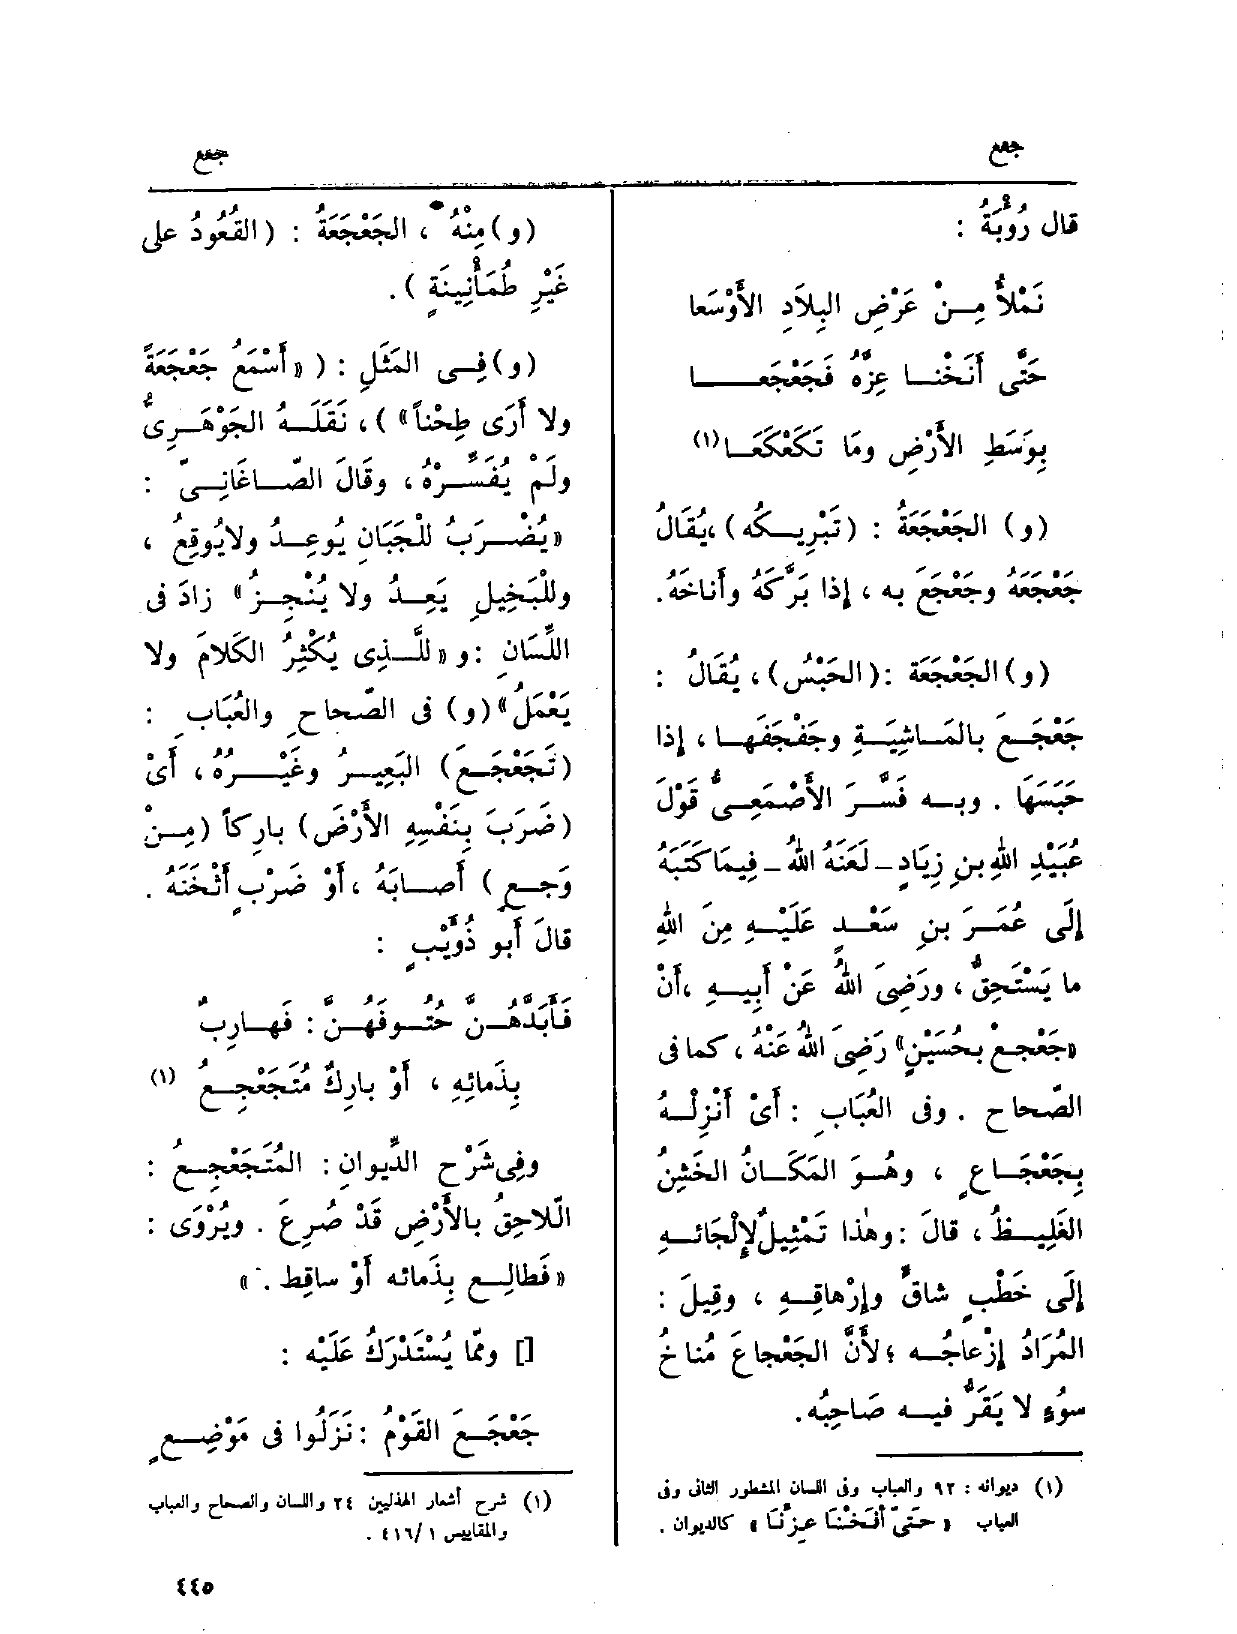 جعع
جعع
قال رُؤْبَةُ :
نَمْلأُ مِنْ عَرْضِ البِلاَدِ الأَوْسَعا
حَتَّى أَنَخْنا عِزُّه فَجَعْجَعا
بِوَسَطِ الأَرْضِ وما تَكَعْكَعَا (١)
(و) الجَعْجَعَةُ : (تَبْرِيكُه)، يُقَالُ
جَعْجَعَهُ وجَعْجَعَ به ، إذا بَرَّكَهُ وأَناخَهُ.
(و) الجَعْجَعَة : (الحَبْسُ)، يُقَالُ :
جَعْجَعَ بالمَاشِيَةِ وجَفْجَفَها ، إذا
حَبَسَهَا . وبه فَسَّرَ الأَصْمَعِىُّ قَوْلَ
عُبَيْدِ اللهِ بنِ زِيَادٍ - لَعَنَهُ اللهُ - فِيمَا كَتَبَهُ
إِلَى عُمَرَ بنِ سَعْدٍ عَلَيْهِ مِنَ اللهِ
ما يَسْتَحِقُّ ، ورَضِىَ اللهُ عَنْ أَبِيهِ ، أَنْ
«جَعْجِعْ بحُسَيْنٍ» رَضِىَ اللهُ عَنْهُ ، كما فى
الصّحاح . وفى العُبَابِ : أَىْ أَنْزِلْهُ
بِجَعْجَاعٍ ، وهُوَ المَكَانُ الخَشِنُ
الغَلِيظُ ، قالَ : وهٰذا تَمْثِيلٌ لإِلْجَائهِ
إِلَى خَطْبٍ شاقٍّ وإِرْهاقِهِ ، وقِيلَ :
المُرَادُ إِزْعاجُه ؛ لأَنَّ الجَعْجاعَ مُناخُ
سوْءٍ لا يَقَرُّ فيه صَاحِبُه.
(١) ديوانه : ٩٢ والعباب وفى اللسان المشطور الثانى وفى
العباب « حَتَّى أَنَخْنَا عِزَّنَا » كالديوان .
(و) مِنْهُ ، الجَعْجَعَةُ : (القُعُودُ على
غَيْرِ طُمَأْنِينَةٍ ) .
(و) فِى المَثَلِ : ( « أَسْمَعُ جَعْجَعَةً
ولا أَرَى طِحْناً» ) ، نَقَلَهُ الجَوْهَرِىُّ
ولَمْ يُفَسِّرْهُ ، وقالَ الصّاغَانِىّ :
«يُضْرَبُ للْجَبَانِ يُوعِدُ ولا يُوقِعُ ،
وللْبَخِيلِ يَعِدُ ولا يُنْجِزُ» زادَ فى
اللِّسَانِ : و «للَّذِى يُكْثِرُ الكَلامَ ولا
يَعْمَلُ» (و) فى الصّحاحِ والعُبَابِ :
(تَجَعْجَعَ) البَعِيرُ وغَيْرُهُ ، أَىْ
(ضَرَبَ بِنَفْسِهِ الأَرْضَ) بارِكاً (مِنْ
وَجَعٍ ) أَصابَهُ ، أَوْ ضَرْبٍ أَثْخَنَهُ .
قالَ أَبو ذُؤَيْبٍ :
فَأَبَدَّهُنَّ حُتُوفَهُنَّ : فَهارِبٌ
بِذَمائِهِ ، أَوْ بارِكٌ مُتَجَعْجِعُ (١)
وفِى شَرْحِ الدِّيوانِ : المُتَجَعْجِعُ :
الّلاحِقُ بالأَرْضِ قَدْ صُرِعَ . ويُرْوَى :
« فَطالِع بِذَمائه أَوْ ساقِط . »
[] وممّا يُسْتَدْرَكُ عَلَيْه :
جَعْجَعَ القَوْمُ : نَزَلُوا فى مَوْضِعٍ
(١) شرح أشعار الهذليين ٢٤ واللسان والصحاح والعباب
والمقاييس ١ /٤١٦ .
٤٤٥